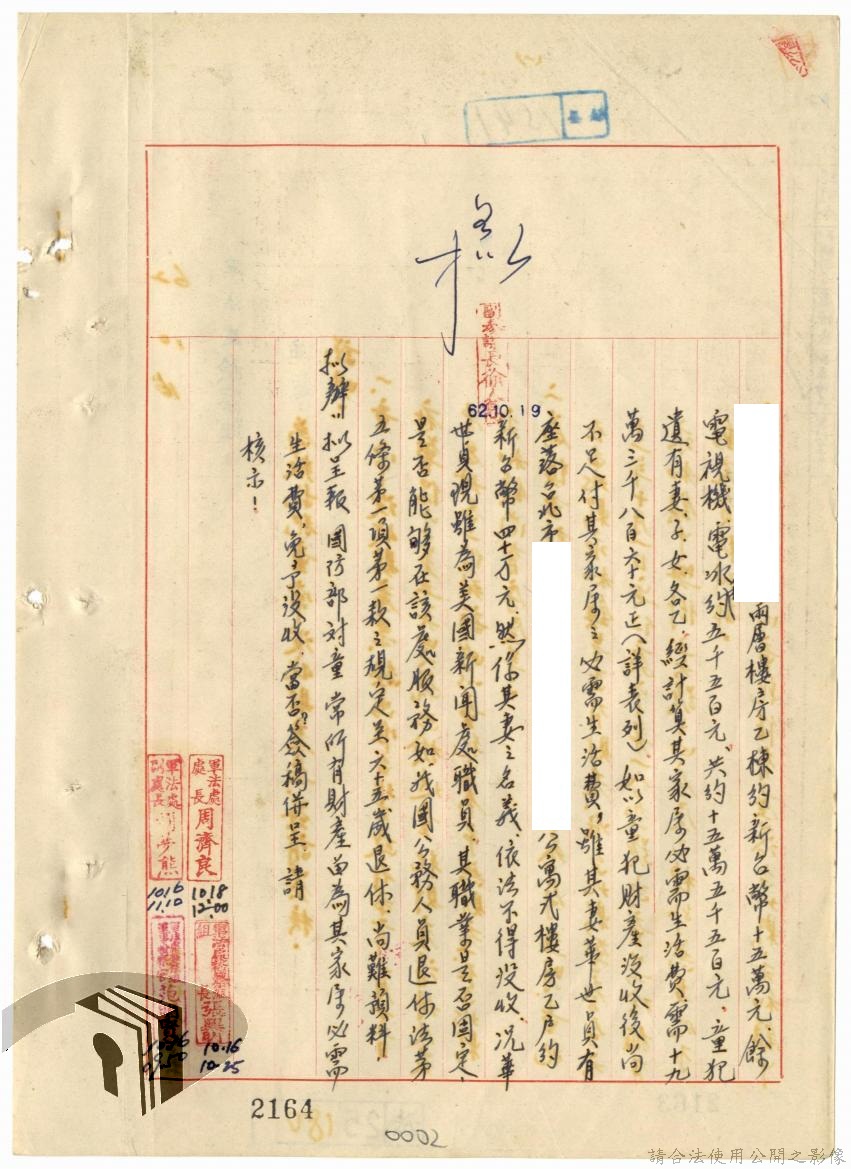 擬
62.10.19
兩層樓房乙棟約新台幣十五萬元、餘
電視機、電冰約五千五百元、共約十五萬五千五百元。童犯
遺有妻、子、女、各乙、經計算其家屬必需生活費、需十九
萬三千八百六十元正(詳表列)如以童犯財產沒收後尚
不足付其家屬之必需生活費,雖其妻華世貞有
座落台北市
公寓式樓房乙戶約
新台幣四十万元、然係其妻之名義、依法不得沒收、況華
世貞現雖為美國新聞處職員、其職業是否固定、
是否能够在該處服務如我國公務人員退休法第
五條第一項第一款之規定至六十五歲退休、尚難預料,
擬辦:擬呈報 國防部對童常所有財產留為其家屬必需
生活費,免予沒收、當否?簽稿併呈 請
核示!
軍法處
處長周濟良
10.18
12:00
軍法處
副處長
10.16
11.10
10.16
10.25
2164
0002
請合法使用公開之影像